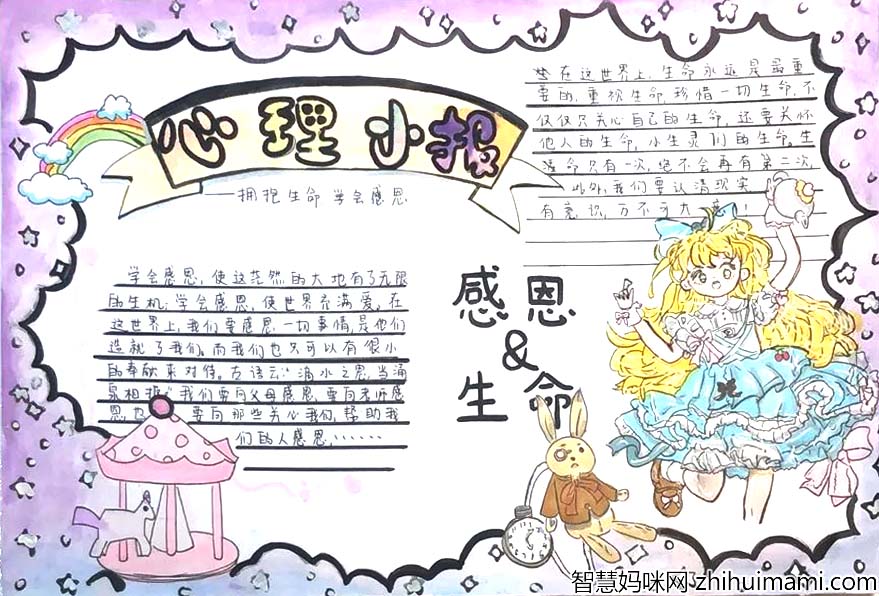 心理小报
——拥抱生命 学会感恩
在这世界上,生命永远是最重
要的,重视生命,珍惜一切生命,不
仅仅只关心自己的生命,还要关怀
他人的生命,小生灵们的生命。生
命只有一次,绝不会再有第二次,
此外,我们要认清现实
有意识,万不可大意!
学会感恩,使这茫然的大地有了无限
的生机;学会感恩,使世界充满爱,在
这世界上,我们要感恩一切事情,是他们
造就了我们。而我们也只可以有很小
的奉献来对待。古语云:“滴水之恩,当涌
泉相报”我们要向父母感恩,要向老师感
恩也 要向那些关心我们,帮助我
们的人感恩,……
感恩
&
生命
智慧妈咪网·zhihuimami.com